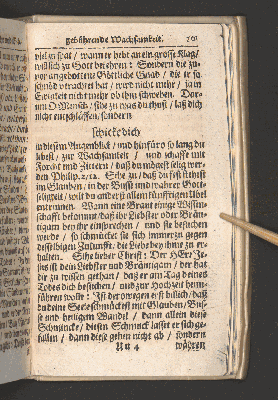 gebührende Wachsamkeit. 701
viel zu spat / wann er hebt an ein grosse Klag /
willich zu Gott bekehren: Sondern die zu-
vor angebottene Göttliche Gnad / die er so
schnöd verachtet hat / wird nicht mehr / ja in
Ewigkeit nicht mehr ob ihm schweben. Dar-
um O Mensch / sihe zu was du thust / laß dich
nicht entschläffen, sondern
schicke dich
in diesem Augenblick / und hinfüro so lang du
lebest / zur Wachsamkeit / und schaffe mit
Forcht und Zittern / daß du mögest selig wer-
den Philip. 2/12. Sihe zu / daß du fest stehest
im Glauben / in der Busse und wahrer Gott-
seligkeit / wilt du anderst allem künfftigen Ubel
entrinnen. Wann eine Braut einige Wissen-
schafft bekommt / daß ihr Liebster oder Bräu-
tigam bey ihr einsprechen / und sie besuchen
werde / so schmücket sie sich immerzu gegen
desselbigen Zukunfft, die Liebe bey ihme zu er-
halten. Sihe lieber Christ: Der HErr Je-
sus ist dein Liebster und Bräutigam / der hat
dir zu wissen gethan / daß er am Tag deines
Todes dich besuchen / und zur Hochzeit heim-
führen wolle: Ist derowegen erst billich / daß
du deine Seele schmückest mit Glauben / Bus-
se und heiligem Wandel / dann allein diese
Schmücke / diesen Schmuck lasset er sich ge-
fallen / dann diese gehen nicht ab / sondern
Uu 4 währen